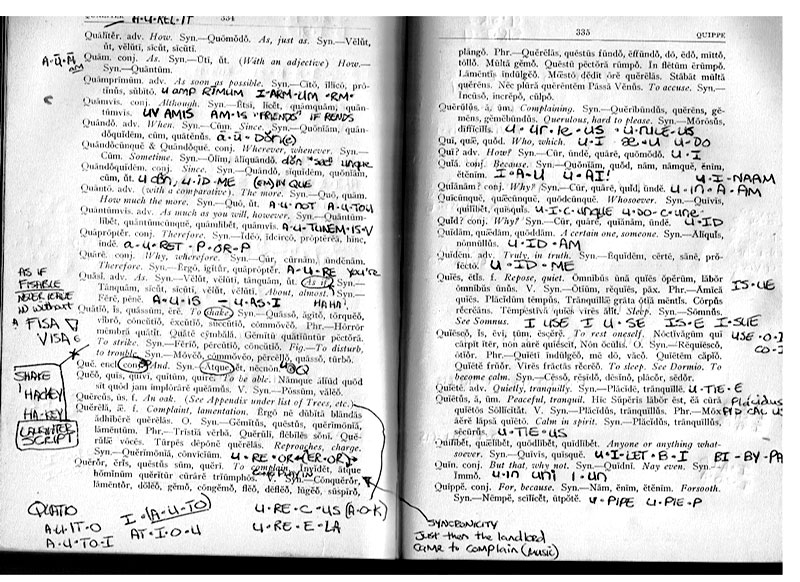 A·U·REL·IT
Quālĭtĕr. adv. How. Syn.—Quōmŏdŏ. As, just as. Syn.—Vĕlŭt,
ŭt, vĕlŭtī, sīcŭt, sīcŭtī.
Quăm. conj. As. Syn.—Ūti, ŭt. (With an adjective) How.—
Syn.—Quāntŭm.
Quāmprīmŭm. adv. As soon as possible. Syn.—Cĭtŏ, īllĭcō, prō-
tĭnŭs, sŭbĭtō. U AMP RIMUM I·ARM·UM·RM·
Quāmvīs. conj. Although. Syn.—Ētsī, lĭcĕt, quāmquăm, quān-
tūmvīs. UV AMIS AM·IS "FRIENDS" IF RENDS
Quāndō. adv. When. Syn.—Cŭm. Since. Syn.—Quŏnĭăm, quān-
dŏquĭdĕm, cŭm, quātĕnŭs.
Quāndōcūnquĕ & Quāndōquĕ. conj. Wherever, whenever. Syn.—
Cŭm. Sometime. Syn.—Ōlĭm, ălĭquāndō.
Quāndŏquĭdĕm. conj. Since. Syn.—Quāndō, sīquĭdĕm, quŏnĭăm,
cŭm, ŭt. U dōn, U·ID·ME (EM)INQUE
Quāntō. adv. (with a comparative). The more. Syn.—Quō, quăm.
How much the more. Syn.—Quō, ŭt. A·U·NOT A·U·TOU
Quāntūmvīs. adv. As much as you will, however. Syn.—Quāntūm-
lĭbĕt, quāntūmcūnquĕ, quāmlĭbĕt, quāmvīs. A·U·TUNEM·IS·V
Quāprōptĕr. conj. Therefore. Syn.—Ĭdĕō, īdcīrcō, prōptĕrĕā, hīnc,
īndĕ. A·U·RET·P·OR·P
Quārē. conj. Why, wherefore. Syn.—Cŭr, cūrnăm, ūndĕnăm.
Therefore. Syn.—Ērgō, ĭgĭtŭr, quāprōptĕr. A·U·RE YOU'RE
Quăsĭ. adv. As. Syn.—Vĕlŭt, vĕlŭtī, tānquăm, ŭt. As if. Syn.—
Tānquăm, sīcŭt, sīcŭtī, vĕlŭt, vĕlŭtī. About, almost. Syn.—
Fĕrē, pēnĕ. A·U·IS — U·AS·I HAHA!
Quătĭō, ĭs, quāssŭm, ĕrĕ. To shake. Syn.—Quāssō, ăgĭtō, tōrquĕō,
vībrō, cōncŭtĭō, ēxcŭtĭō, sūccŭtĭō, cōmmŏvĕō. Phr.—Hōrrŏr
mēmbră quătĭt. Quătĕ cȳmbălă. Gĕmĭtū quătĭūntŭr pēctŏră.
To strike. Syn.—Fĕrĭō, pērcŭtĭō, cōncŭtĭō. Fig.—To disturb,
to trouble. Syn.—Mŏvĕō, cōmmŏvĕō, pērcēllō, quāssō, tūrbō.
Quĕ, encl. conj. And. Syn.—Ātquĕ, ĕt, nēcnōn. UQ
Quĕō, quīs, quīvī, quĭtŭm, quīrĕ. To be able. Nāmquĕ ălĭŭd quŏd
sīt quŏd jam īmplōrārĕ quĕāmŭs. V. Syn.—Pōssŭm, vălĕō.
Quērcŭs, ūs. f. An oak. (See Appendix under List of Trees, etc.)
Quĕrēlă, æ. f. Complaint, lamentation. Ērgō nē dŭbĭtā blāndās
ădhĭbērĕ quĕrēlās. O. Syn.—Gĕmĭtŭs, quēstŭs, quĕrĭmōnĭă,
lāmēntŭm. Phr.—Trīstĭă vērbă. Quĕrŭlī, flēbĭlēs sŏnī. Quĕ-
rŭlæ vōcēs. Tūrpēs dēpōnĕ quĕrēlās. Reproaches, charge.
Syn.—Quĕrĭmōnĭă, cōnvīcĭŭm. U·RE·OR·(ER·OR)
Quĕrŏr, ĕrĭs, quēstŭs sŭm, quĕrī. To complain. Īnvĭdĕt, ātquĕ
hŏmĭnŭm quĕrĭtŭr cūrārĕ trĭūmphōs. V. Syn.—Cōnquĕrŏr,
lāmēntŏr, dŏlĕō, gĕmō, cōngĕmō, flĕō, dēflĕō, lūgĕō, sūspīrō,
A·U·M
AM
AS IF
FISABLE
NEVER LEAVE
IN without
A FISA
VISA
SHAKE
HACKEY
HA·KEY
LAUGHTER
SCRIPT
QUATIO
A·U·IT·O
A·U·TO·I
I·(A·U·TO)
AT·I·O·U
U·RE·C·US (A·O·K)
U·RE·E·LA
335 QUIPPE
plāngō. Phr.—Quĕrēlās, quēstūs fūndō, ēffūndō, dō, ēdō, mīttō,
tōllō. Mūltă gĕmō. Quēstū pēctŏră rūmpō. In flētŭm ērūmpō.
Lāmēntīs īndūlgĕō. Mœstō dĕdĭt ōrĕ quĕrēlās. Stābăt mūltă
quĕrēns. Nēc plūră quĕrēntĕm Pāssă Vĕnŭs. To accuse. Syn.—
Īncūsō, īncrĕpō, cūlpō.
Quĕrŭlŭs, ă, ŭm. Complaining. Syn.—Quĕrĭbūndŭs, quĕrēns, gĕ-
mēns, gĕmēbūndŭs. Querulous, hard to please. Syn.—Mōrōsŭs,
dīffĭcĭlĭs. U·UR·RE·US U·RULE·US
Quī, quæ, quŏd. Who, which. U·I Æ·U U·DO
Quī? adv. How? Syn.—Cŭr, ūndĕ, quārē, quōmŏdŏ. U·I
Quĭă. conj. Because. Syn.—Quŏnĭăm, quŏd, năm, nāmquĕ, ĕnĭm,
ĕtĕnĭm. I·A·U U·AI! U·I·NAAM
Quĭănăm? conj. Why? Syn.—Cŭr, quārē, quĭd, ūndĕ. U·IN·A·AM
Quīcūnquĕ, quæcūnquĕ, quōdcūnquĕ. Whosoever. Syn.—Quīvīs,
quīlĭbĕt, quīsquĭs. U·I·C·UNQUE U·DO·C·UNE·
Quĭd? conj. Why? Syn.—Cŭr, quārē, quĭănăm, ūndĕ. U·ID
Quīdăm, quædăm, quōddăm. A certain one, someone. Syn.—Ălĭquĭs,
nōnnūllŭs. U·ID·AM
Quĭdĕm. adv. Truly, in truth. Syn.—Ĕquĭdĕm, cērtē, sānē, prō-
fēctō. U·ID·ME
Quĭēs, ētĭs. f. Repose, quiet. Ōmnĭbŭs ūnă quĭēs ŏpĕrŭm, lăbŏr
ōmnĭbŭs ūnŭs. V. Syn.—Ōtĭŭm, rĕquĭēs, pāx. Phr.—Ămīcă
quĭēs. Plăcĭdŭm tēmpŭs. Trānquīllæ grātă ōtĭă mēntĭs. Cōrpŭs
rĕcrĕāns. Tēmpēstīvă quĭēs vīrēs ălĭt. Sleep. Syn.—Sōmnŭs.
See Somnus. I USE I·U·SE IS·E I·SUE
IS·UE
Quĭēscō, ĭs, ēvī, tŭm, ēscĕrĕ. To rest oneself. Nōctĭvăgŭm quī
cārpĭt ĭtĕr, nōn aurĕ quĭēscĭt, Nōn ŏcŭlīs. O. Syn.—Rĕquĭēscō,
ōtĭŏr. Phr.—Quĭĕtī īndūlgĕō, mē dō, văcō. Quĭētĕm căpĭō.
Quĭētĕ frŭŏr. Vīrēs frāctās rĕcrĕō. To sleep. See Dormio. To
become calm. Syn.—Cēssō, rĕsīdō, dēsĭnō, plācŏr, sēdŏr.
USE·O·I
CO·I
Quĭētē. adv. Quietly, tranquilly. Syn.—Plăcĭdē, trānquīllē. U·TIE·E
Quĭētŭs, ă, ŭm. Peaceful, tranquil. Hīc Sŭpĕrīs lăbŏr ēst, ĕă cūră
quĭētōs Sōllĭcĭtăt. V. Syn.—Plăcĭdŭs, trānquīllŭs. Phr.—Mōx
āĕrĕ lāpsă quĭētō. Calm in spirit. Syn.—Plăcĭdŭs, trānquīllŭs,
sēcūrŭs. U·TIE·US
Plăcidus
Quīlĭbĕt, quælĭbĕt, quōdlĭbĕt, quīdlĭbĕt. Anyone or anything what-
soever. Syn.—Quīvīs, quīsquĕ. U·I·LET·B·I BI·BY·PA
Quīn. conj. But that, why not. Syn.—Quīdnī. Nay even. Syn.—
Īmmō. U·IN UNI I·UN
Quīppĕ. conj. For, because. Syn.—Năm, ĕnĭm, ĕtĕnĭm. Forsooth.
Syn.—Nēmpĕ, scīlĭcĕt, ŭtpŏtĕ. U·PIPE U·PIE·P
SYNCRONICITY
Just then the landlord
came to complain (music)